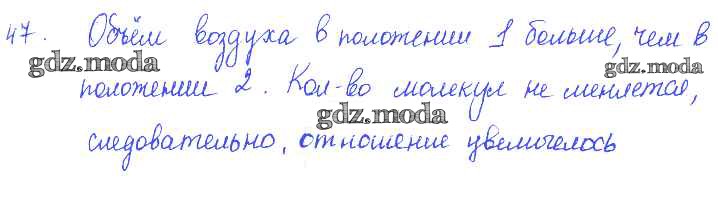 47. Объём воздуха в положении 1 больше, чем в
gdz.moda gdz.moda
положении 2. Кол-во молекул не меняется,
gdz.moda
следовательно, отношение увеличелось